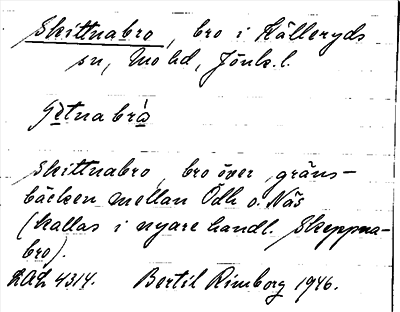 Skittnabro, bro i Källeryds
sn, Mo hd, Jönk. l.
skittnabro, bro över gräns-
bäcken mellan Ödh o. Näs
(kallas i nyare handl. Skeppna-
bro).
4314. Bertil Rimborg 1946.